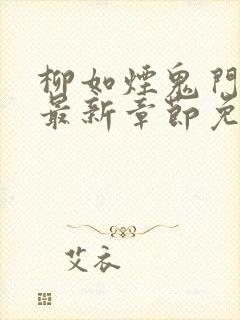 柳如煙鬼門
最新章節免
艾衣